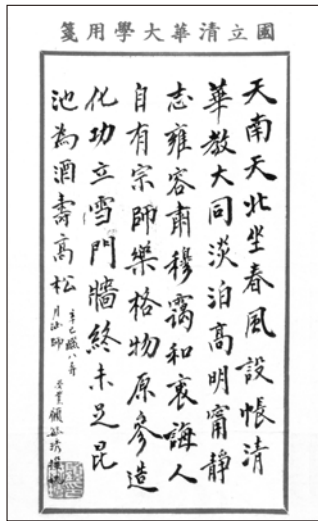 國立清華大學用箋
天南天北坐春風設帳清
華教大同淡泊高明甯靜
志雍容肅穆藹和衷誨人
自有宗師樂格物原參造
化功立雪門牆終未足昆
池為酒壽高松
辛巳臘八壽
月涵師
受業顧毓琇